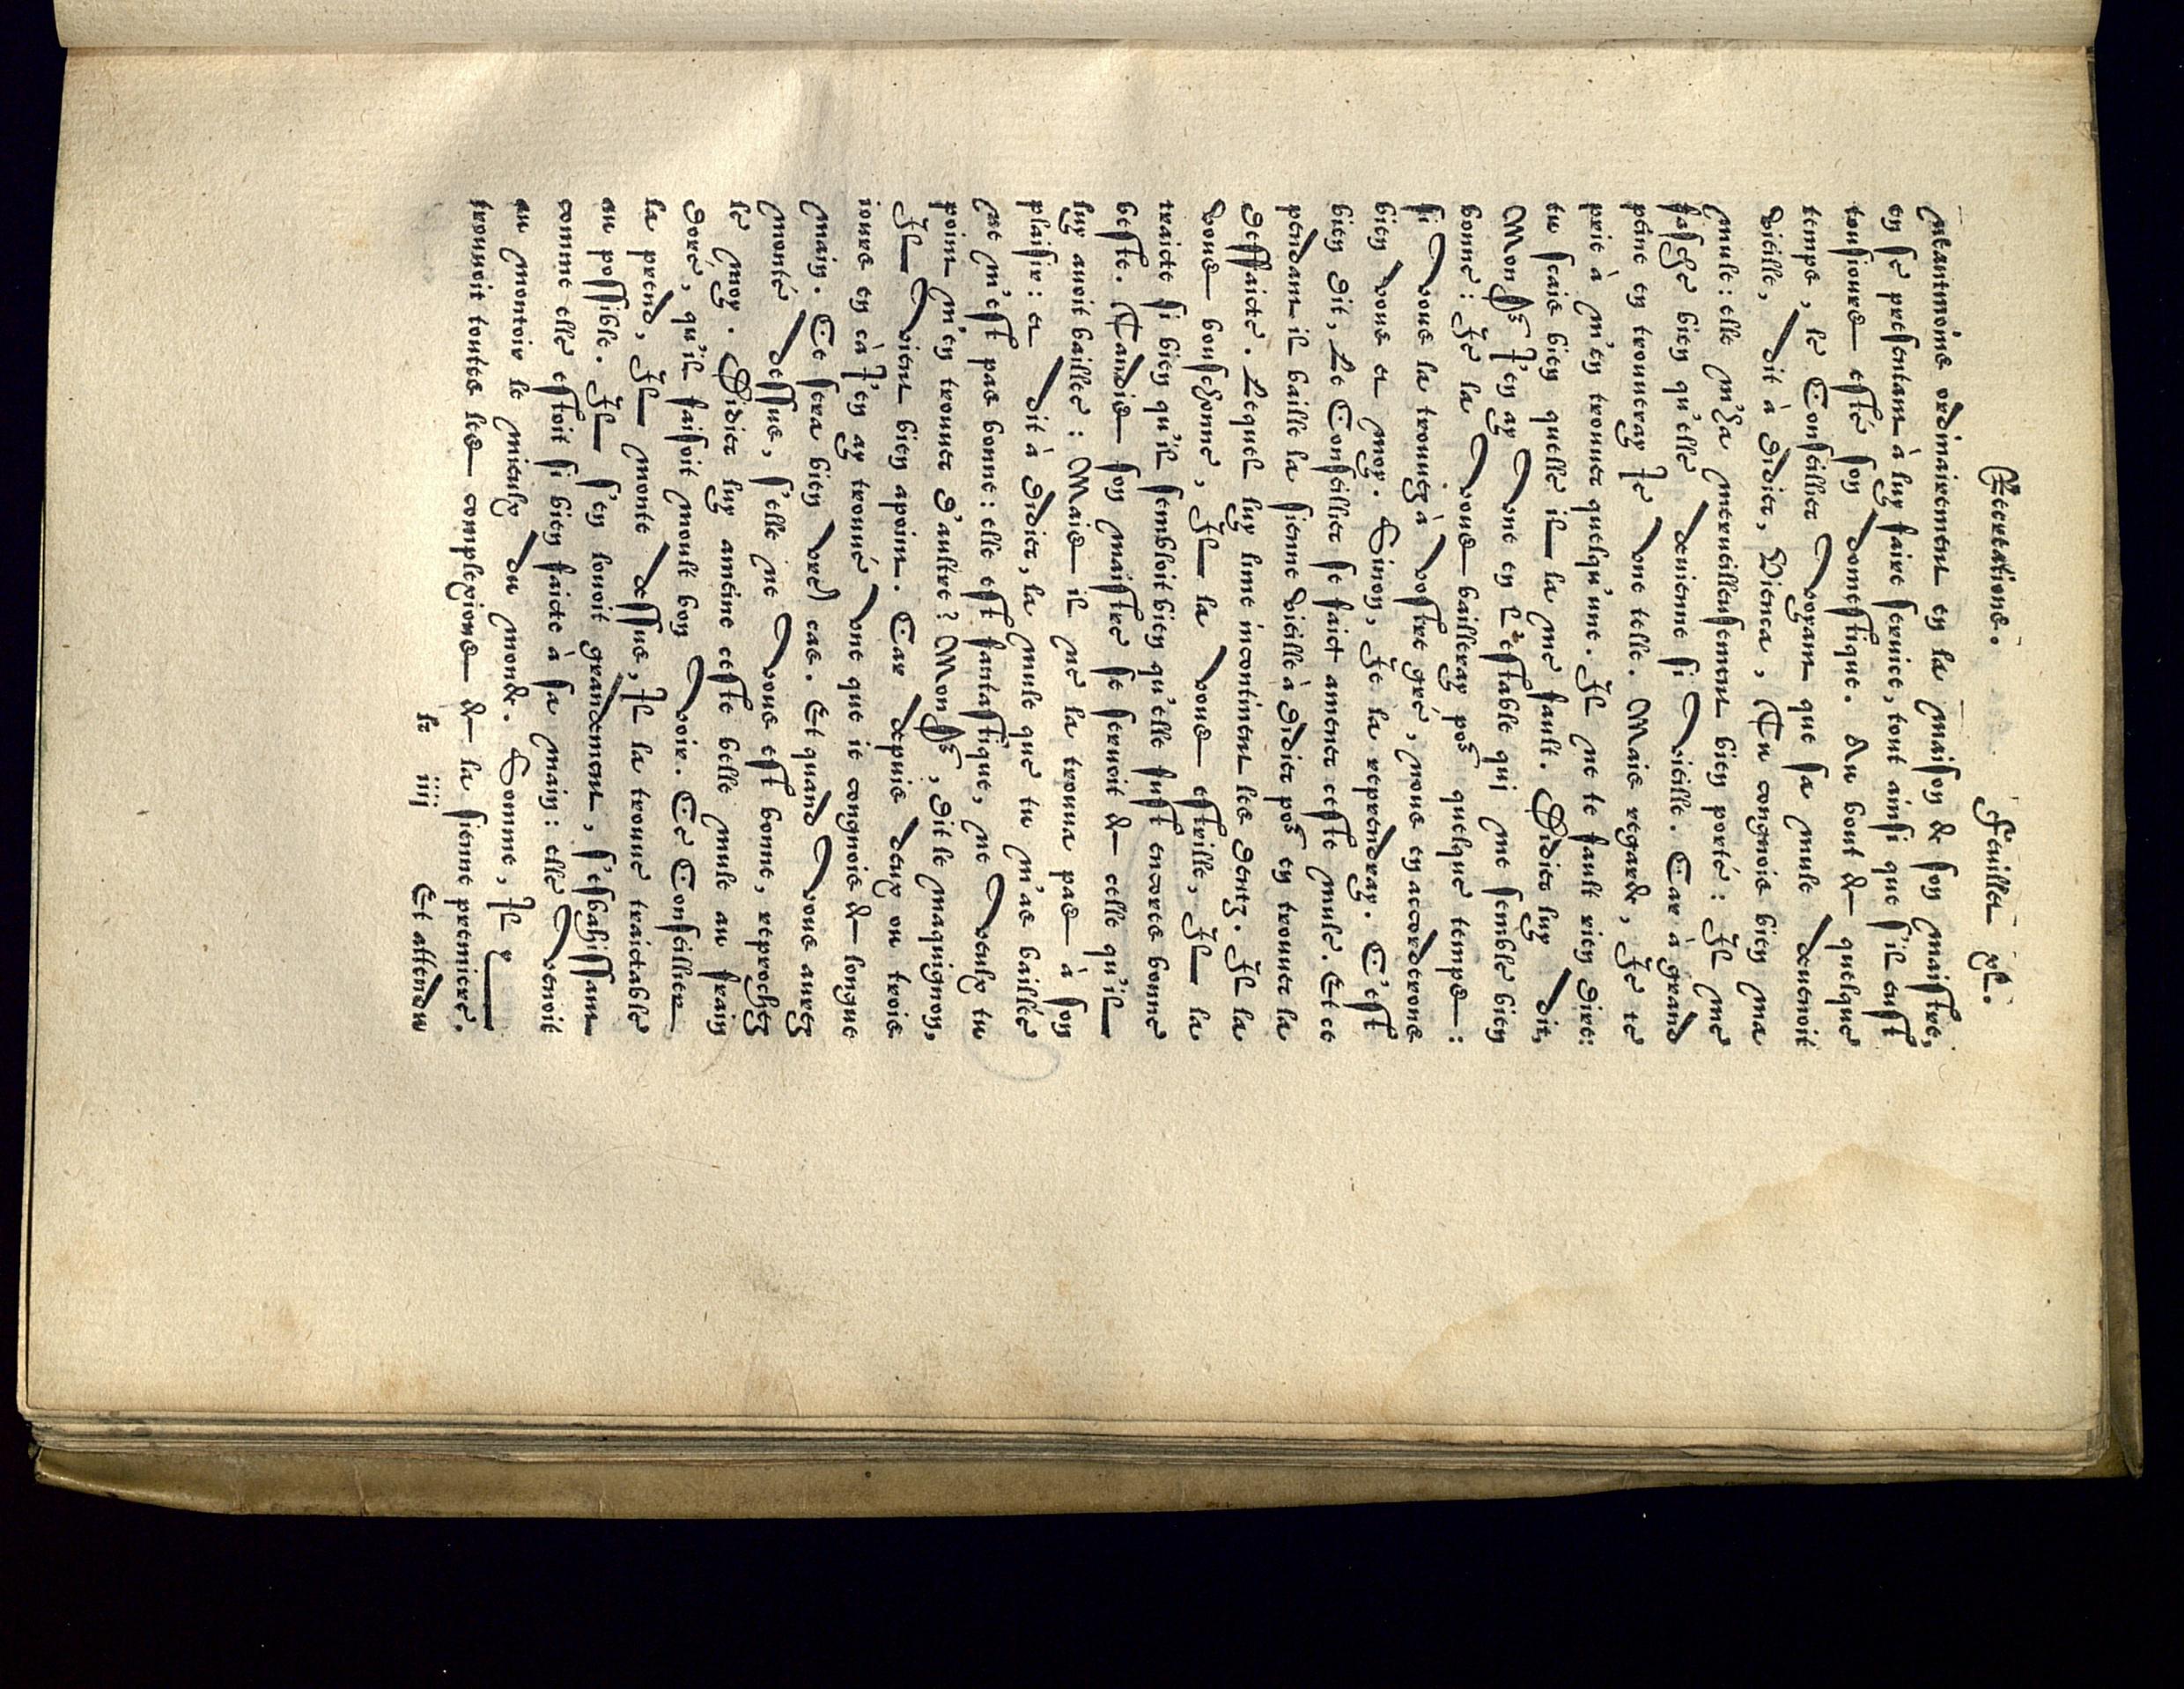 Recreations. Feuillet xl.
neantmoins ordinairement en la maison de son maistre,
en se presentant à luy faire seruice, tout ainsi que s'il eust
tousiours esté son domestique. Au bout de quelque
temps, le Conseillier voyant que sa mule deuenoit
vieille, dit à Didier, Viença, Tu congnois bien ma
mule: elle m'ha merueilleusement bien porté: Il me
fasche bien qu'elle deuienne si vieille. Car à grand
peine en trouueray ie vne telle. Mais regarde, Ie te
prie à m'en trouuer quelqu'vne. Il ne te fault rien dire:
tu scais bien quelle il la me fault. Didier luy dit,
Monsr i'en ay vne en l'estable qui me semble bien
bonne: Ie la vous bailleray por quelque temps:
si vous la trouuez à vostre gré, nous en accorderons
bien vous et moy. Sinon, Ie la reprendray. C'est
bien dit, Le Conseillier se faict amener ceste mule. Et ce
pendant il baille la sienne vieille à Didier por en trouuer la
deffaicte. Lequel luy lime incontinent les dentz. Il la
vous bouschonne, Il la vous estrille, Il la
traicte si bien qu'il sembloit bien qu'elle fust encores bonne
beste. Tandis son maistre se seruoit de celle qu'il
luy auoit baillée: Mais il ne la trouua pas à son
plaisir: et dit à Didier, la mule que tu m'as baillée
ne m'est pas bonne: elle est fantastique, ne veulx tu
point m'en trouuer d'aultre? Monsr, dit le maquignon,
Il vient bien apoint. Car depuis deux ou trois
iours en cà i'en ay trouué vne que ie congnois de longue
main. Ce sera bien vore) cas. Et quand vous aurez
monté dessus, s'elle ne vous est bonne, reprochez
le moy. Didier luy ameine ceste belle mule au frain
doré, qu'il faisoit moult bon voir. Ce Conseillier
la prend, Il monte dessus, Il la trouue traictable
au possible. Il s'en louoit grandement, s'esbahissant
comme elle estoit si bien faicte à sa main: elle venoit
au montoir le mieulx du monde. Somme, Il y
trouuoit toutes les complexions de la sienne premiere.
k iiij Et attendu